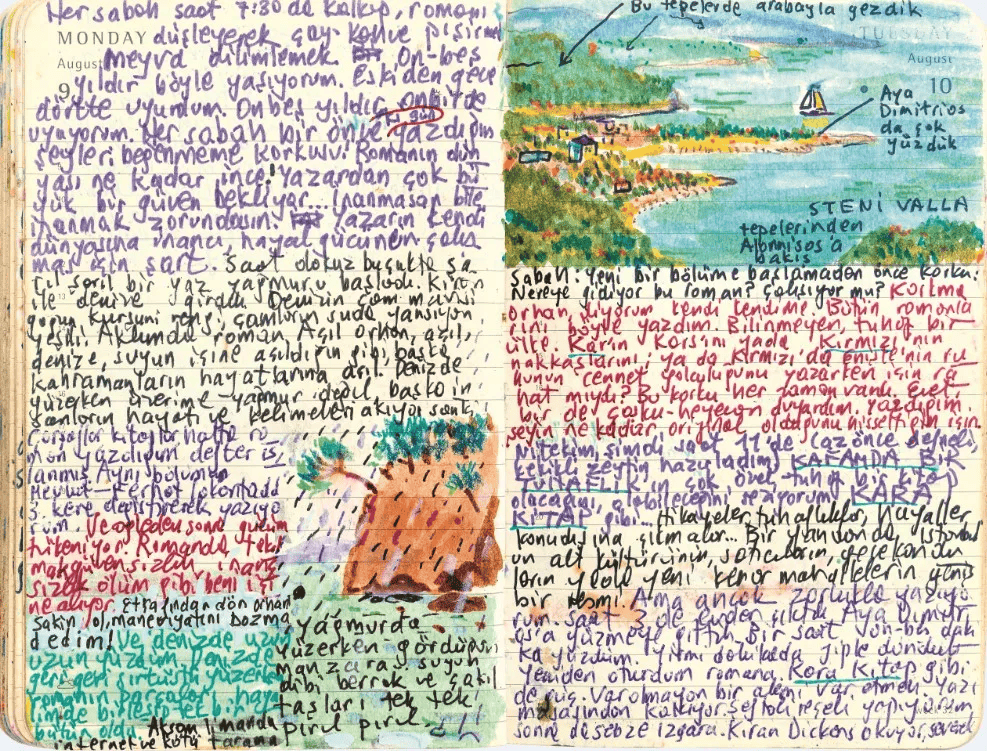 Her sabah saat 7:30 da kalkıp, romanı
MONDAY düşleyerek çay-kahve pişirm
August meyva dilimlemek On-beş
9 yıldır böyle yaşıyorum. Eskiden gece
dörtte uyurdum. Onbeş yıldır
uyuyorum. Her sabah bir önce yazdığım
şeyleri beğenmeme korkusu. Romanın dün
yası ne kadar ince! Yazardan çok bü
yük bir güven bekliyor... İnanmasan bile
inanmak zorundasın. Yazarın kendi
dünyasına inancı, hayal gücünün çalış
ması için şart. Saat dokuz buçukta şa
rıl şarıl bir yaz yağmuru başladı. Kiran
ile denize girdim. Denizin cam mavisi
kurşuni rengi, çamların suda yansıyan
yeşili. Aklımda roman Açıl Orhan, açıl,
denize, suyun içine açıldığın gibi başka
kahramanların hayatlarına açıl. Denizde
yüzerken üzerime yağmur değil başka in
sanların hayatı ve kelimeleri akıyor sanki
kitaplar hatta ro
man yazdığım defter ıs
lanmış Aynı bölümü
Mevlut-Ferhat lokantada
3. kere değiştirerek yazıyo
rum. Ve öğleden sonra gücüm
tükeniyor. Romanda tabi
makgüvensizlik inanç
sızlık ölüm gibi beni içi
ne alıyor. Etrafından dön Orhan
sakin ol, maneviyatını bozma
dedim! Ve denizde uzun
uzun yüzdüm. Denizde
geri geri sırtüstü yüzerken
romanın parçaları haya
limde birleşti
bütün oldu. Akşam limanda
internet ve kötü tarama
, yağmurda
yüzerken gördüğüm
manzara: suyun
dibi berrak ve çakıl
taşları tek tek
pırıl pırıl
Bu tepelerde arabayla gezdik
TUESDAY
August
10
Aya
Dimitrios
da çok
yüzdük
STENİ VALLA
tepelerinden
Alonnisos'a
bakış
Sabah: Yeni bir bölüme başlamadan önce korku:
Nereye gidiyor bu roman? Çalışıyor mu? Korkma
Orhan, diyorum kendi kendime. Bütün romanla
rını böyle yazdım. Bilinmeyen, tuhaf bir
ülke. Kar'ın Kars'ını yada Kırmızı'nın
nakkaşlarını; ya da Kırmızı'da enişte'nin ru
hunun cennet yolculuğunu yazarken içim ra
hat mıydı? Bu korku her zaman vardı. Evet
bir de coşku-heyecan duyardım, yazdığım
şeyin ne kadar orijinal olduğunu hissettiğim için
Nitekim, şimdi saat 11'de (az önce defneli,
kekikli zeytin hazırladım) KAFAMDA BİR
TUHAFLIK'ın çok özel, tuhaf bir kitap
olacağını, olabileceğini seziyorum. KARA
KİTAP gibi... Hikayeler, tuhaflıklar, hayaller
konudışına çıkmalar... Bir yandan da, İstanbul
un alt kültürünün, satıcıların, gecekondu
ların yada yeni kenar mahallelerin geniş
bir resmi! Ama ancak zorlukla yazıyo
rum. Saat 3'de evden çıktık Aya Dimitri
os'a yüzmeye gittik Bir saat on-bir daki
ka yüzdüm. Yirmi dakikada jiple döndük
Yeniden oturdum romana. Kara Kitap gibi
de güç. Varolmayan bir alemi var etmek. Yazı
masasından kalkıyor. Şeftali reçeli yapıyorum,
sonra da sebze ızgara. Kiran Dickens okuyor, severek